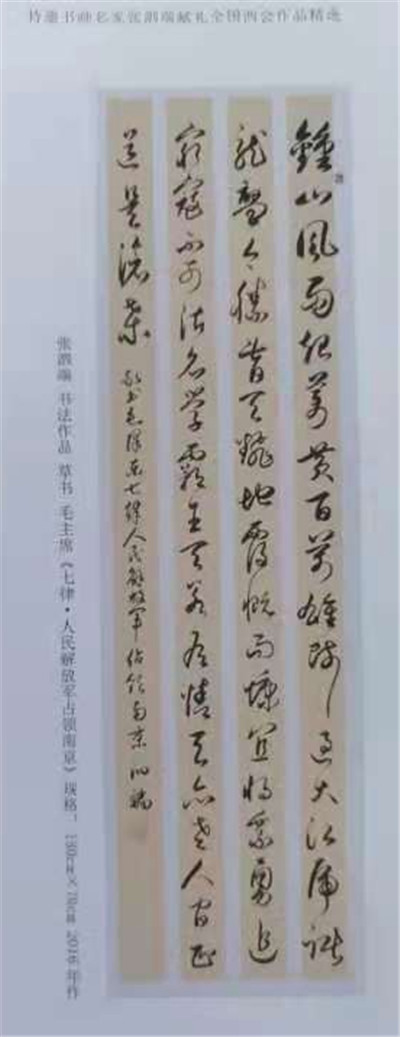 特邀书画名家张泗瑞献礼全国两会作品精选
鍾山風雨起蒼黄百萬雄師過大江虎踞
龍盤今勝昔天翻地覆慨而慷宜將剩勇追
窮寇不可沽名學霸王天若有情天亦老人間正
道是滄桑 敬书毛泽东七律人民解放军占领南京 泗瑞
张泗瑞 书法作品 草书 毛主席《七律·人民解放军占领南京》规格：180cm×70cm 2016年作